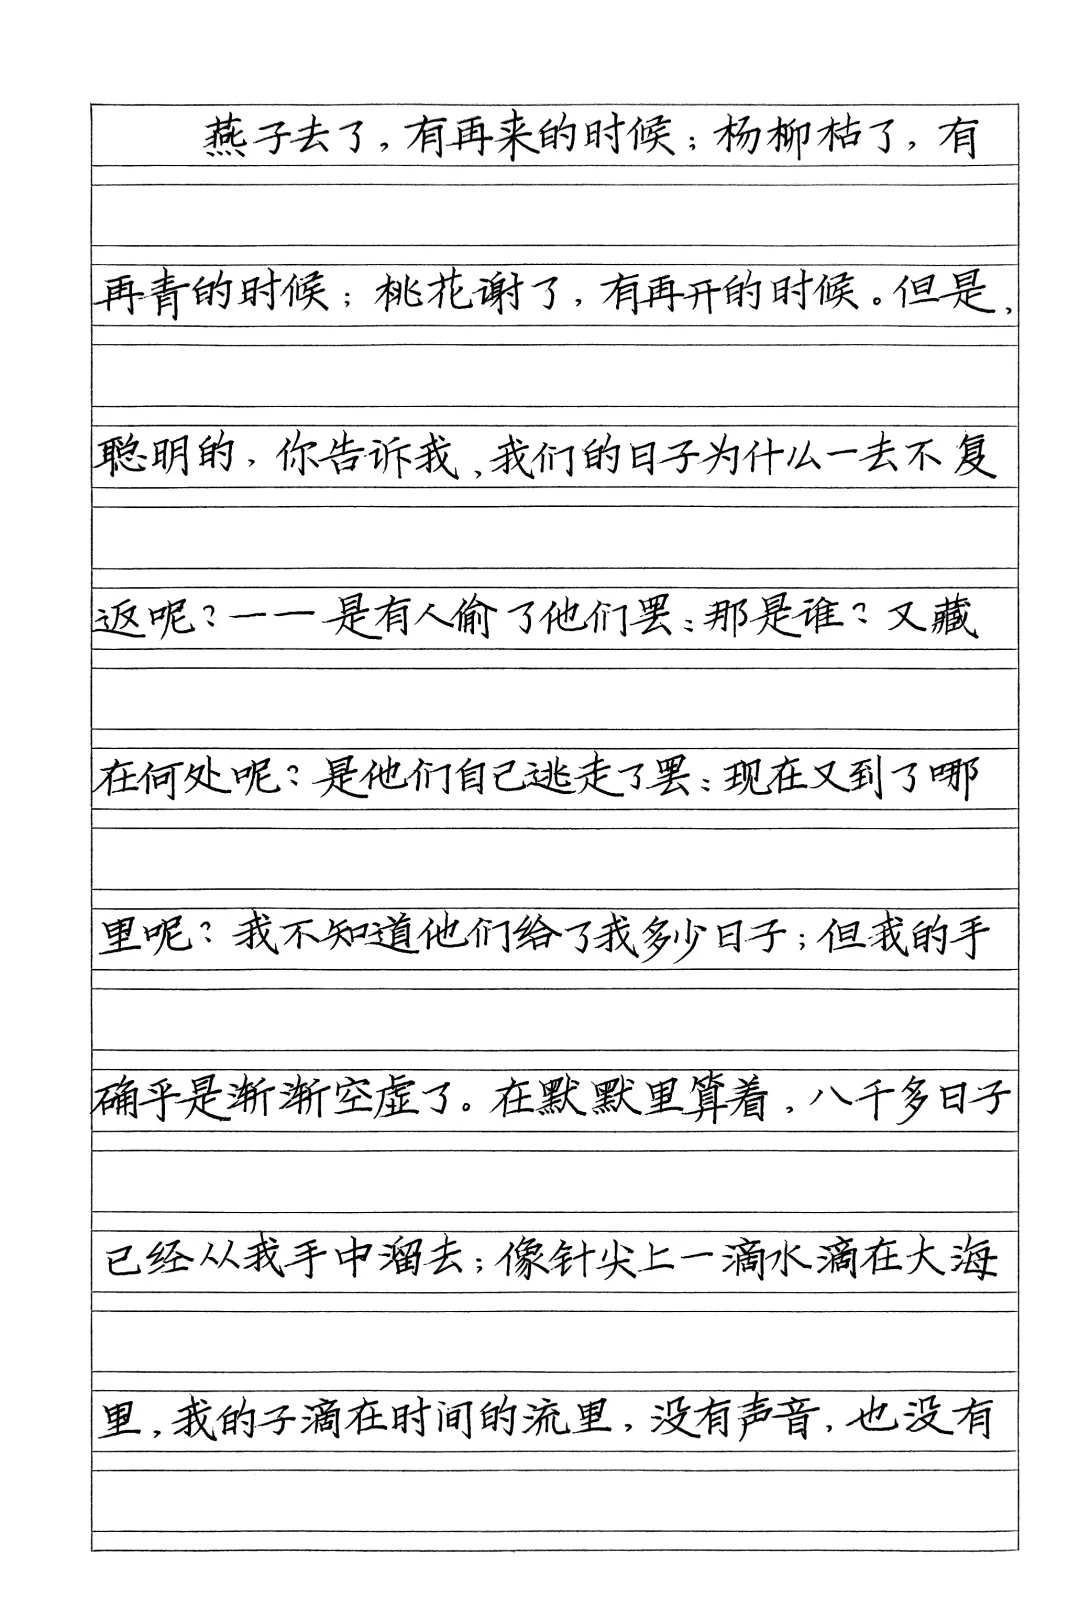 燕子去了，有再来的时候；杨柳枯了，有
再青的时候；桃花谢了，有再开的时候。但是，
聪明的，你告诉我，我们的日子为什么一去不复
返呢？——是有人偷了他们罢：那是谁？又藏
在何处呢？是他们自己逃走了罢：现在又到了哪
里呢？我不知道他们给了我多少日子；但我的手
确乎是渐渐空虚了。在默默里算着，八千多日子
已经从我手中溜去；像针尖上一滴水滴在大海
里，我的子滴在时间的流里，没有声音，也没有